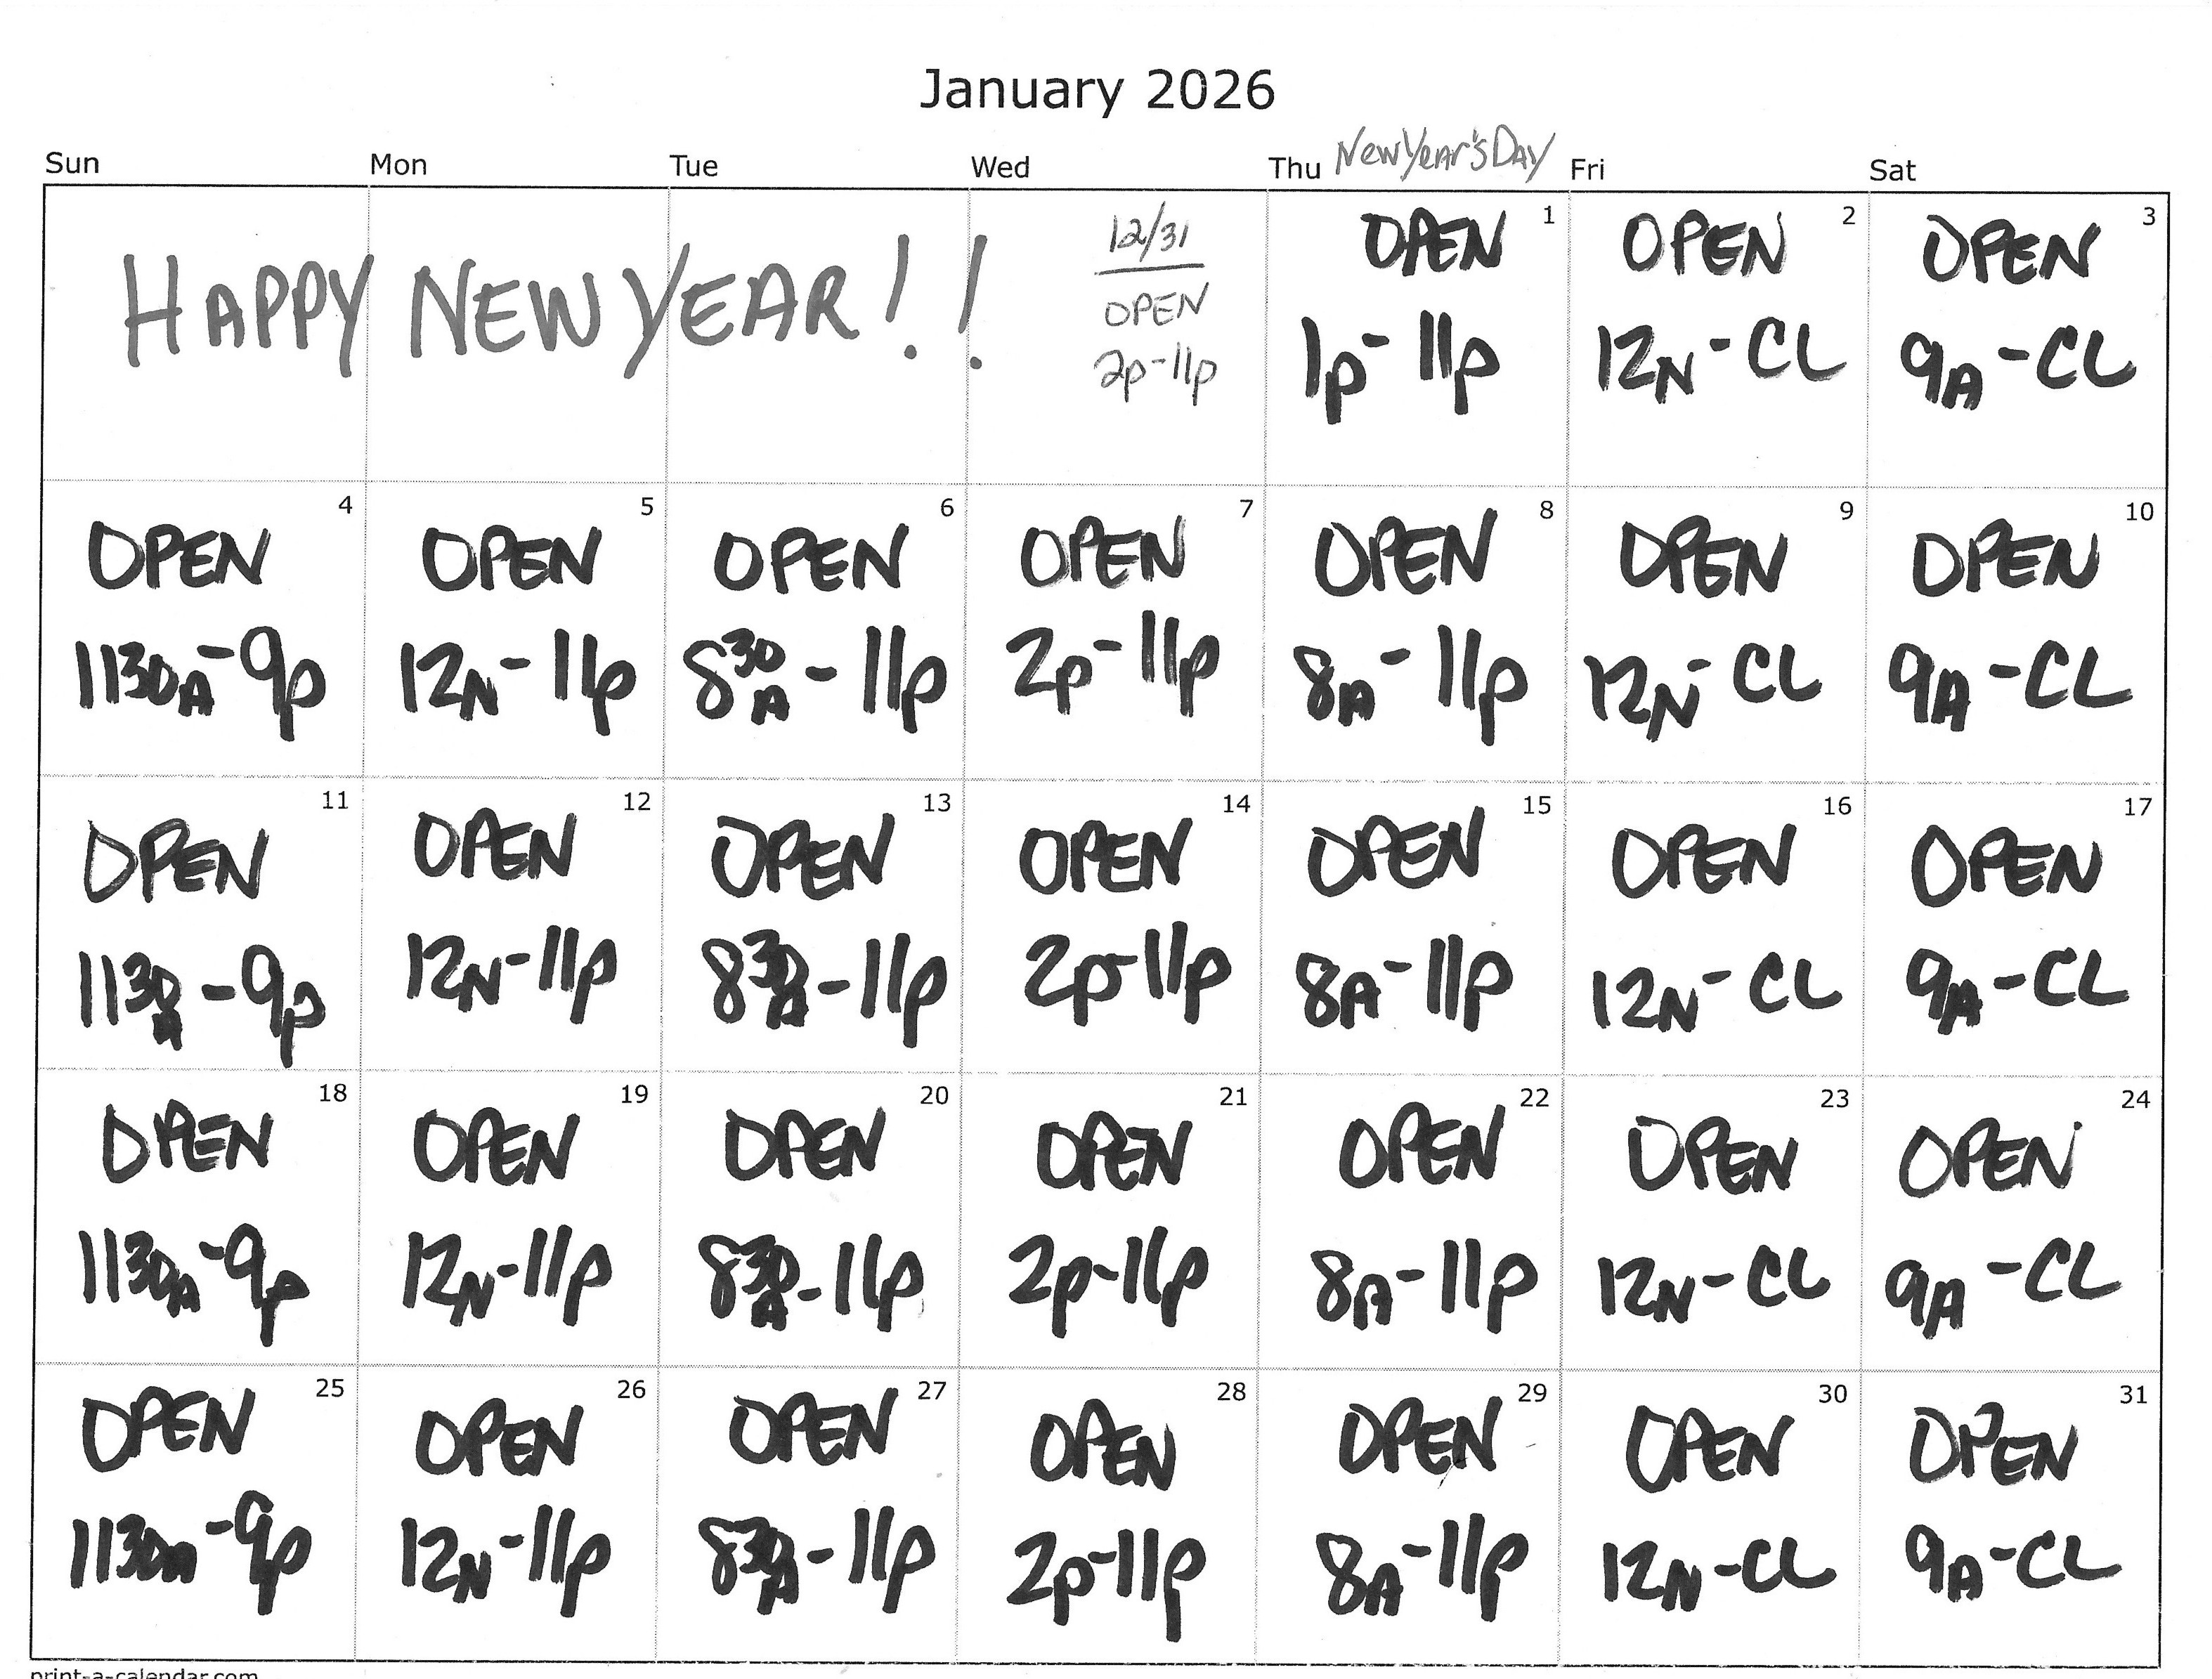 January 2026
Sun Mon Tue Wed Thu New Year's Day Fri Sat
HAPPY NEW YEAR!!
12/31
OPEN
2p-11p
1
OPEN
1p-11p
2
OPEN
12N-CL
3
OPEN
9A-CL
4
OPEN
1130A-9p
5
OPEN
12N-11p
6
OPEN
830A-11p
7
OPEN
2p-11p
8
OPEN
8A-11p
9
OPEN
12N-CL
10
OPEN
9A-CL
11
OPEN
1130A-9p
12
OPEN
12N-11p
13
OPEN
830A-11p
14
OPEN
2p-11p
15
OPEN
8A-11p
16
OPEN
12N-CL
17
OPEN
9A-CL
18
OPEN
1130A-9p
19
OPEN
12N-11p
20
OPEN
830A-11p
21
OPEN
2p-11p
22
OPEN
8A-11p
23
OPEN
12N-CL
24
OPEN
9A-CL
25
OPEN
1130A-9p
26
OPEN
12N-11p
27
OPEN
830A-11p
28
OPEN
2p-11p
29
OPEN
8A-11p
30
OPEN
12N-CL
31
OPEN
9A-CL
print-a-calendar.com